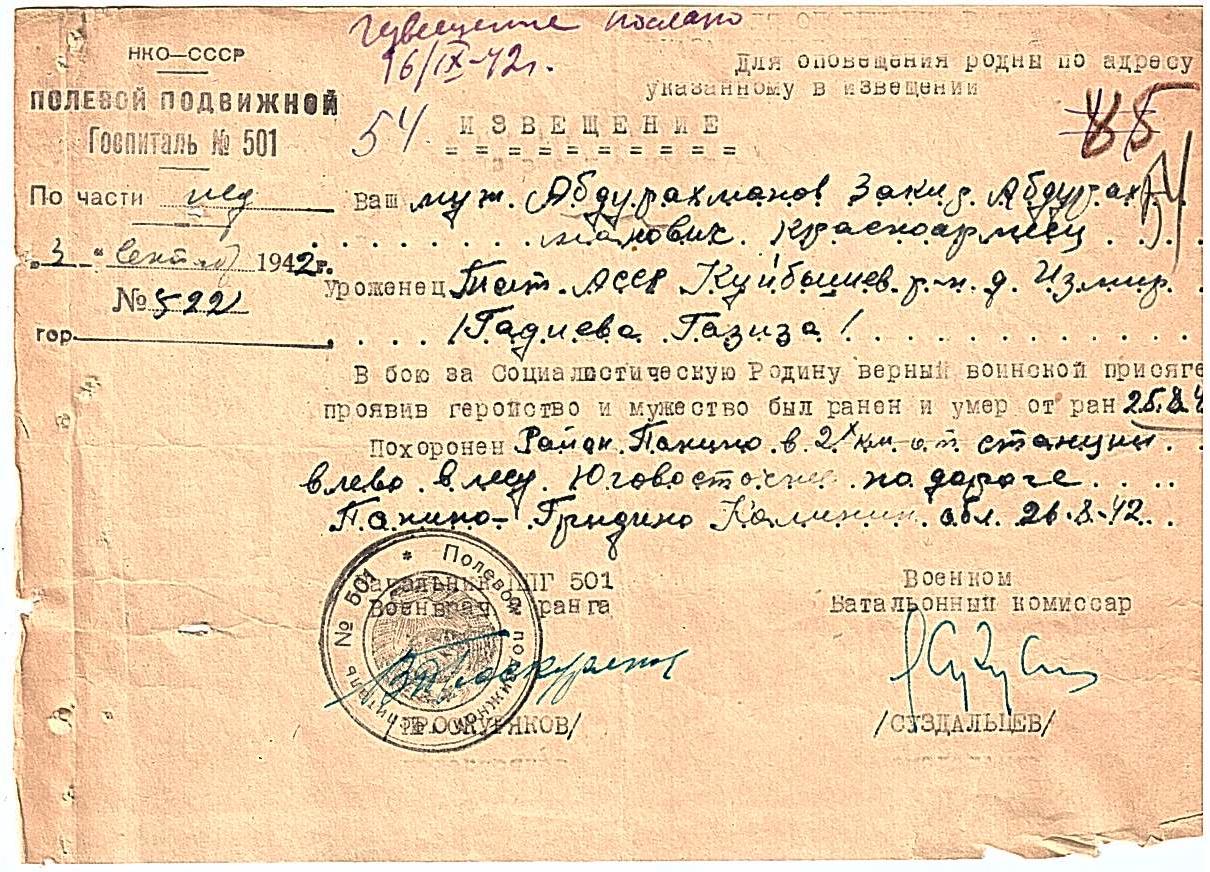 Извещение послано
16/IX-42г.
НКО—СССР
ПОЛЕВОЙ ПОДВИЖНОЙ
Госпиталь № 501
По части мед
„ 3 " 1942г.
№ 522
гор.
Для оповещения родны по адресу
указанному в извещении
54.
ИЗВЕЩЕНИЕ
85
54
Ваш муж. Абдурахманов Закир Абдурах
манович. Красноармеец
Уроженец Тат. АССР Куйбышев. р-н. д. Измир.
/Гадиева Газиза/
В бою за Социалистическую Родину верный воинской присяге
проявив геройство и мужество был ранен и умер от ран 25.8.4
Похоронен Район. Панино в 2х км. от станции
влево. в лесу. Юговосточнее на дороге
Панино-Гридино Калинин. обл. 26-8-42
Начальник ППГ 501
Военврач ранга
Военком
Батальонный комиссар
Полевой подвижной госпиталь № 501
/ПРОСКУРЯКОВ/
/СУЗДАЛЬЦЕВ/